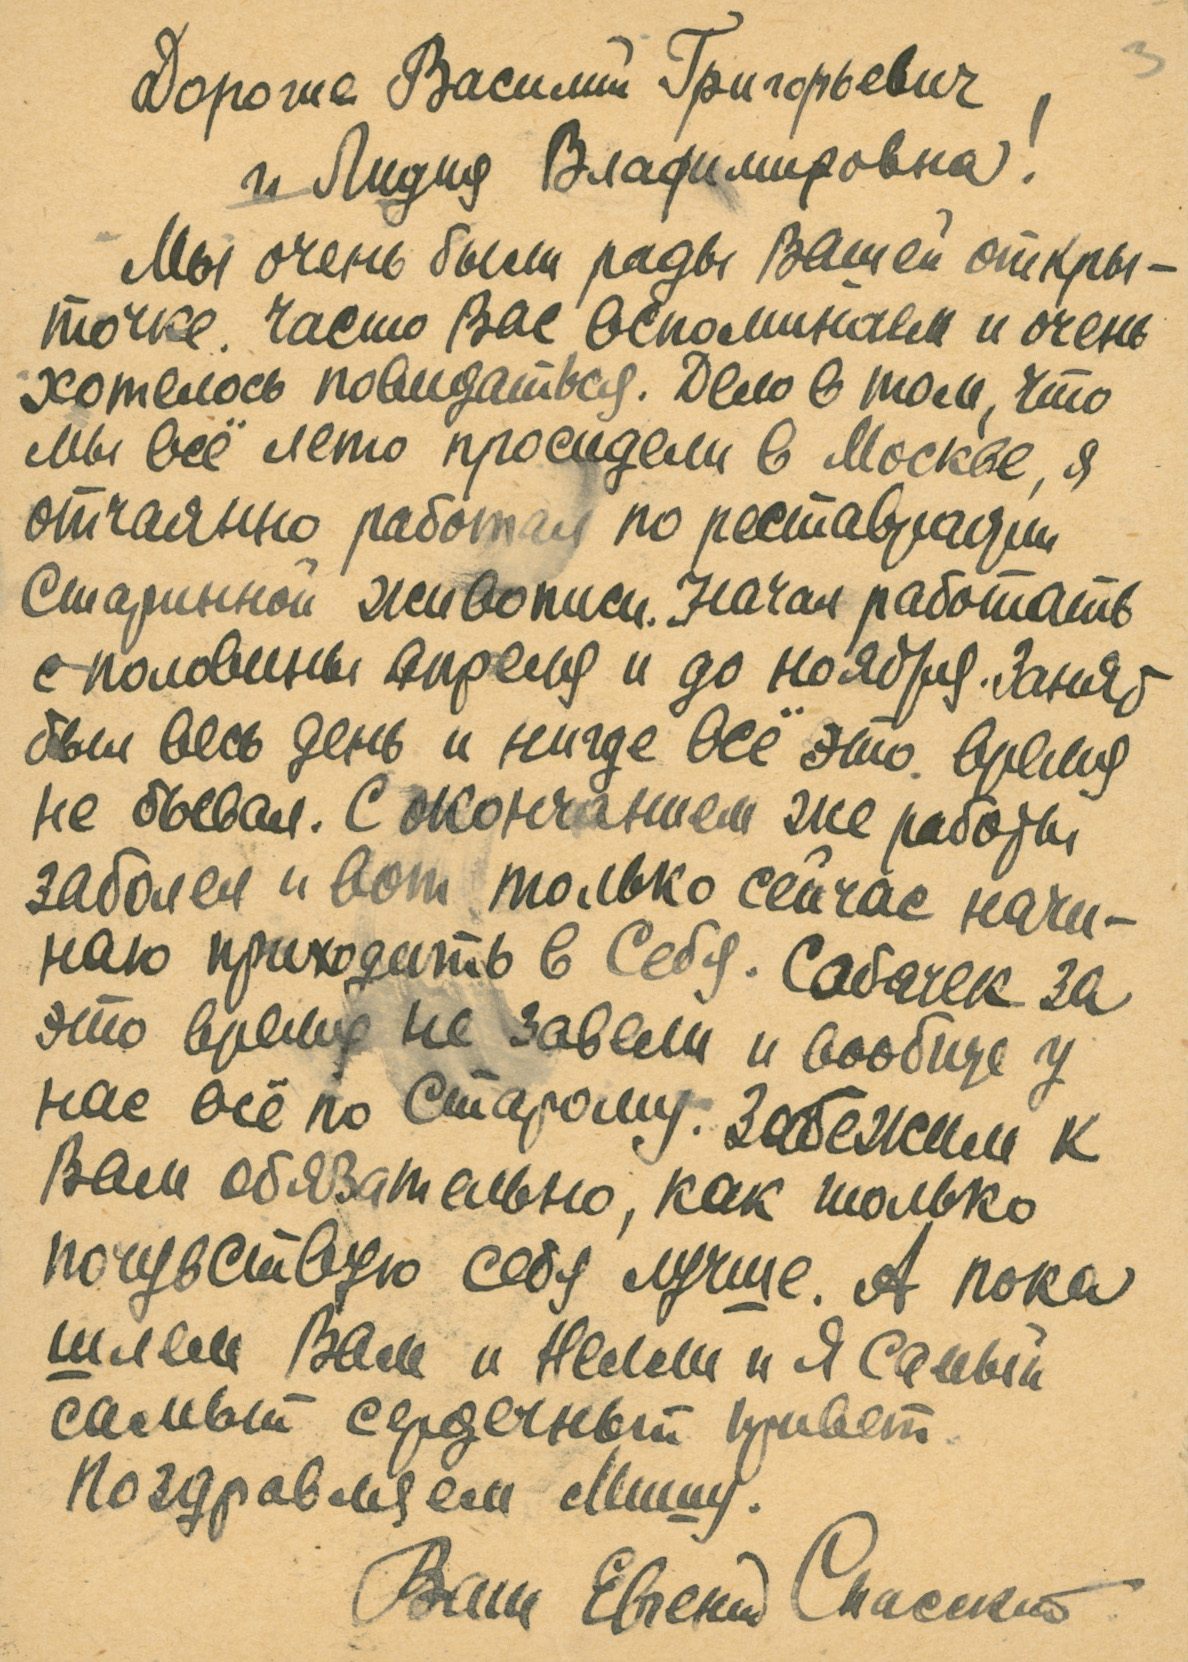 3
Дорогие Василий Григорьевич,
и Лидия Владимировна!
Мы очень были рады Вашей откры-
точке. Часто Вас вспоминаем и очень
хотелось повидаться. Дело в том, что
мы всё лето просидели в Москве, я
отчаянно работал по реставрации
Старинной живописи. Начал работать
с половины апреля и до ноября. Занят
был весь день и нигде всё это время
не бывал. С окончанием же работы
заболел и вот только сейчас начи-
наю приходить в Себя. Собачек за
это время не завели и вообще у
нас всё по Старому. Забежим к
Вам обязательно, как только
почувствую себя лучше. А пока
шлем Вам и Нелли и Я Самый
самый сердечный привет.
Поздравляем Мишу.
Ваш Евгений Спасский